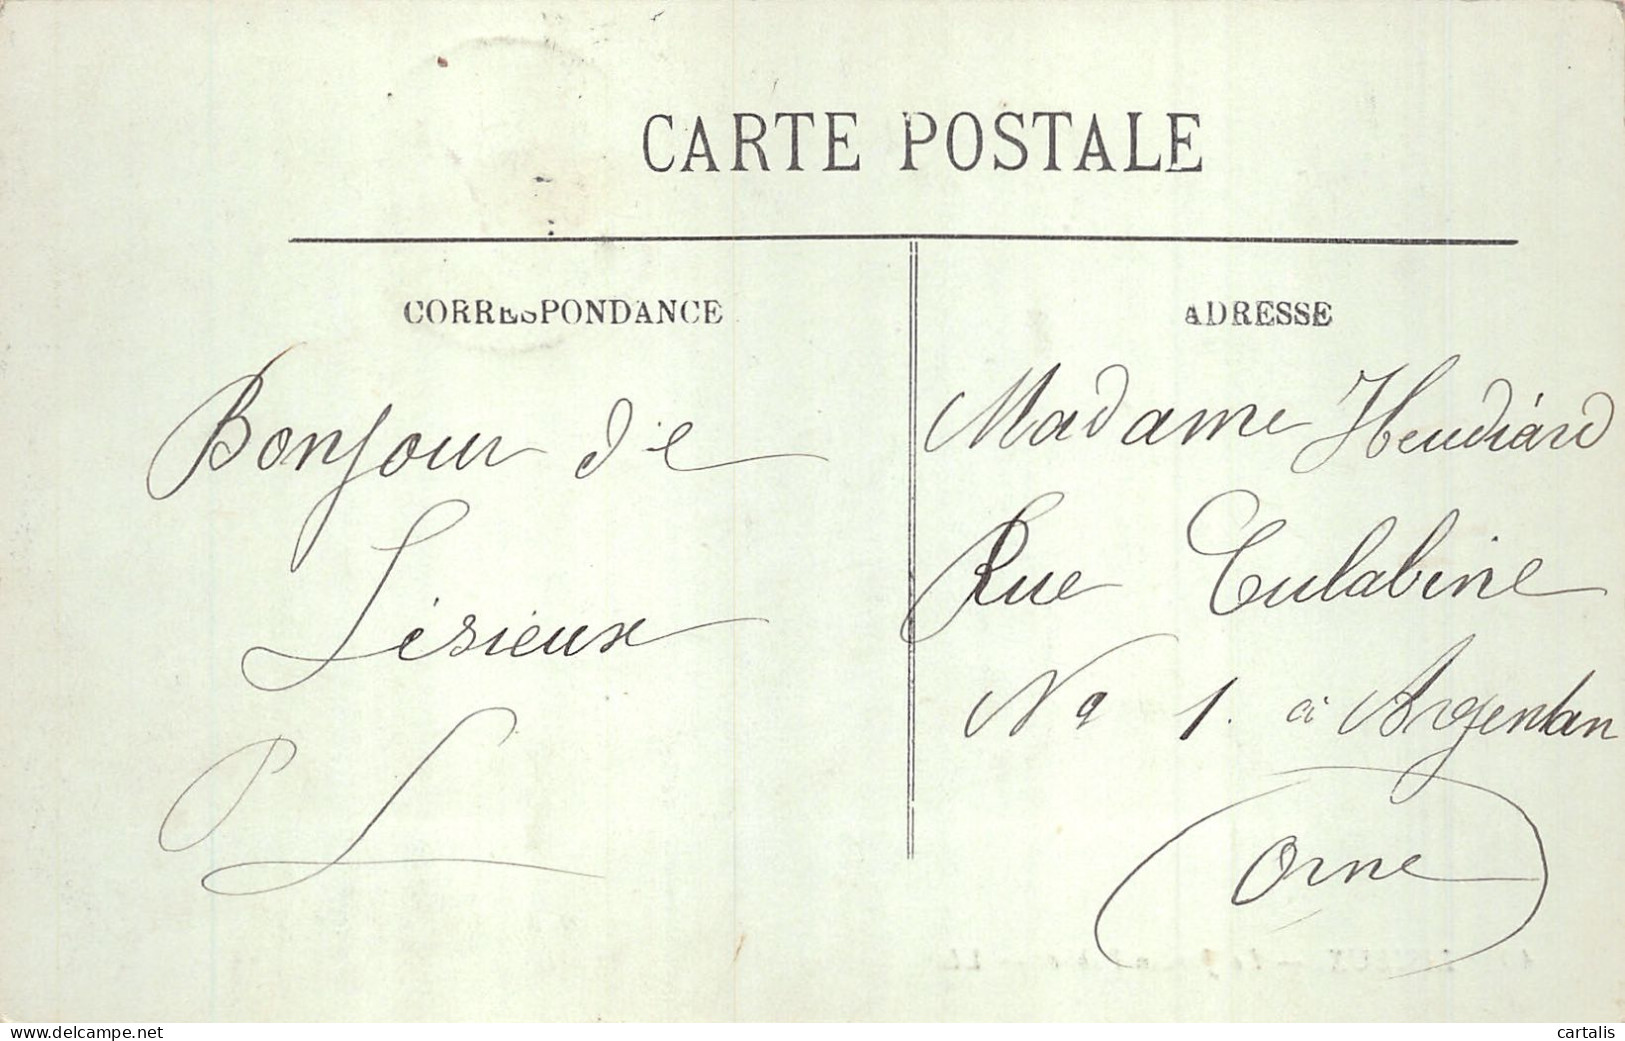 CARTE POSTALE
CORRESPONDANCE
Bonjour de
Lisieux
P L
ADRESSE
Madame Heudiard
Rue Eulabine
No 1. à Argentan
Orne
www.delcampe.net
cartalis